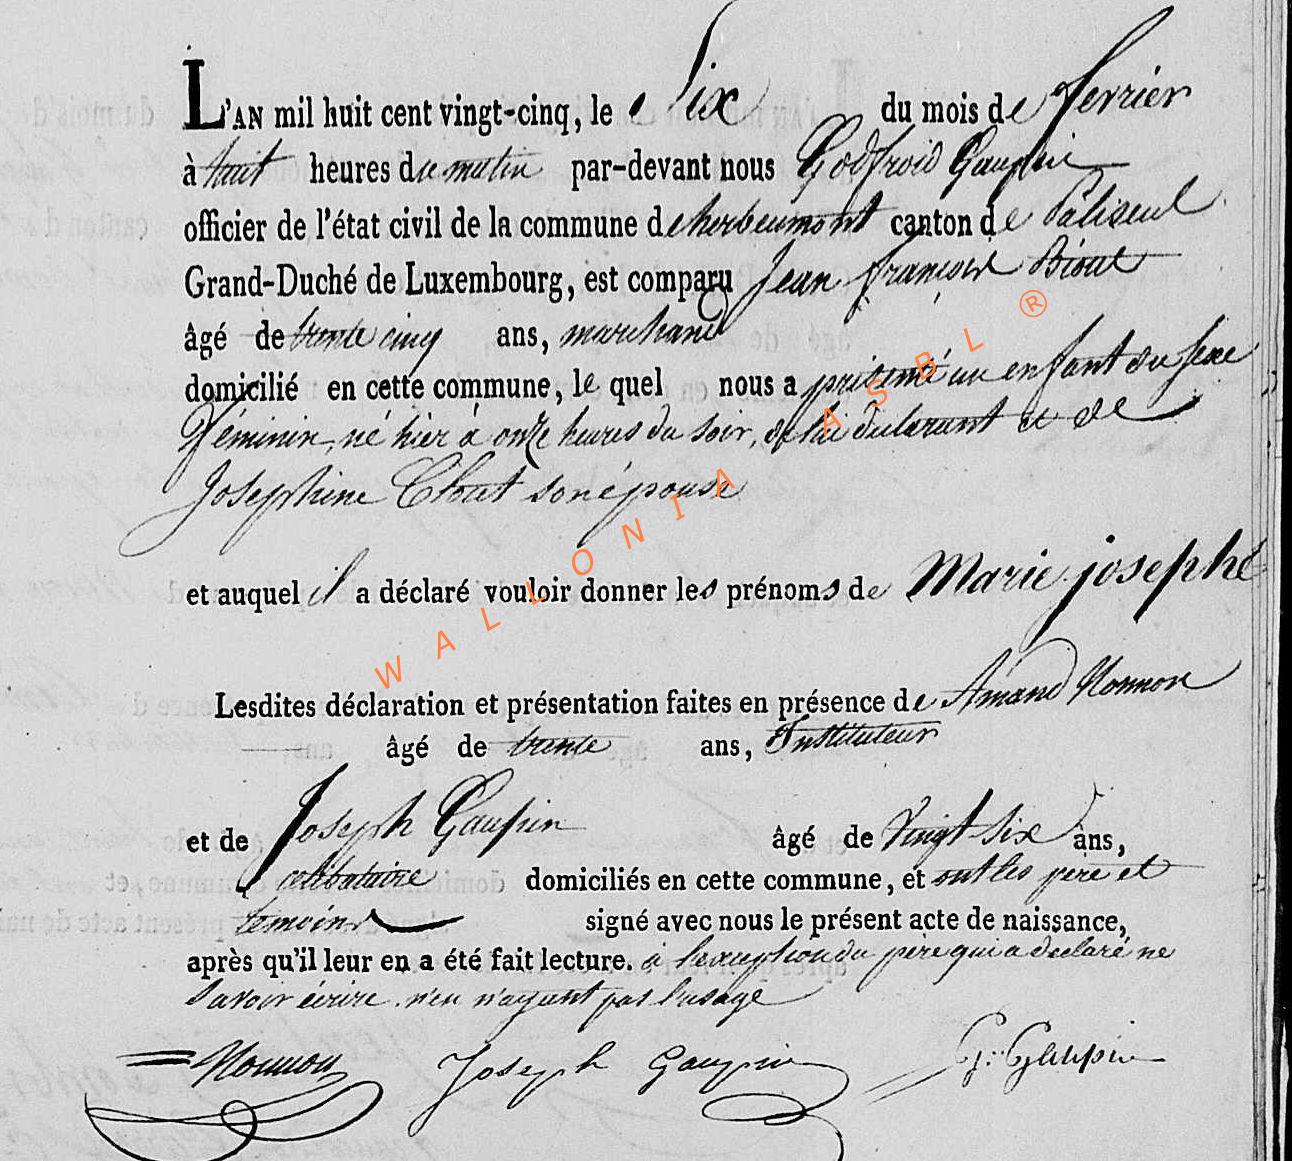 L'AN mil huit cent vingt-cinq, le Six du mois de fevrier
à huit heures du matin par-devant nous Godfroid Gaupin
officier de l'état civil de la commune de herbeumont canton de Paliseul
Grand-Duché de Luxembourg, est comparu Jean françois
âgé de trente cinq ans, marchand
domicilié en cette commune, le quel nous a présenté un enfant du sexe
féminin, né hier à onze heures du soir, de lui declarant et de
Josephine son épouse
et auquel il a déclaré vouloir donner les prénoms de Marie josephe
Lesdites déclaration et présentation faites en présence de Amand Nonnon
âgé de trente ans, Instituteur
et de Joseph Gaupin âgé de Vingt-six ans,
celibataire domiciliés en cette commune, et ont les père et
temoins signé avec nous le présent acte de naissance,
après qu'il leur en a été fait lecture. à l'exception du père qui a declaré ne
savoir écrire. n'en n'ayant pas l'usage
Nonnon Joseph Gaupin G. Gaupin
WALLONIA ASBL ®